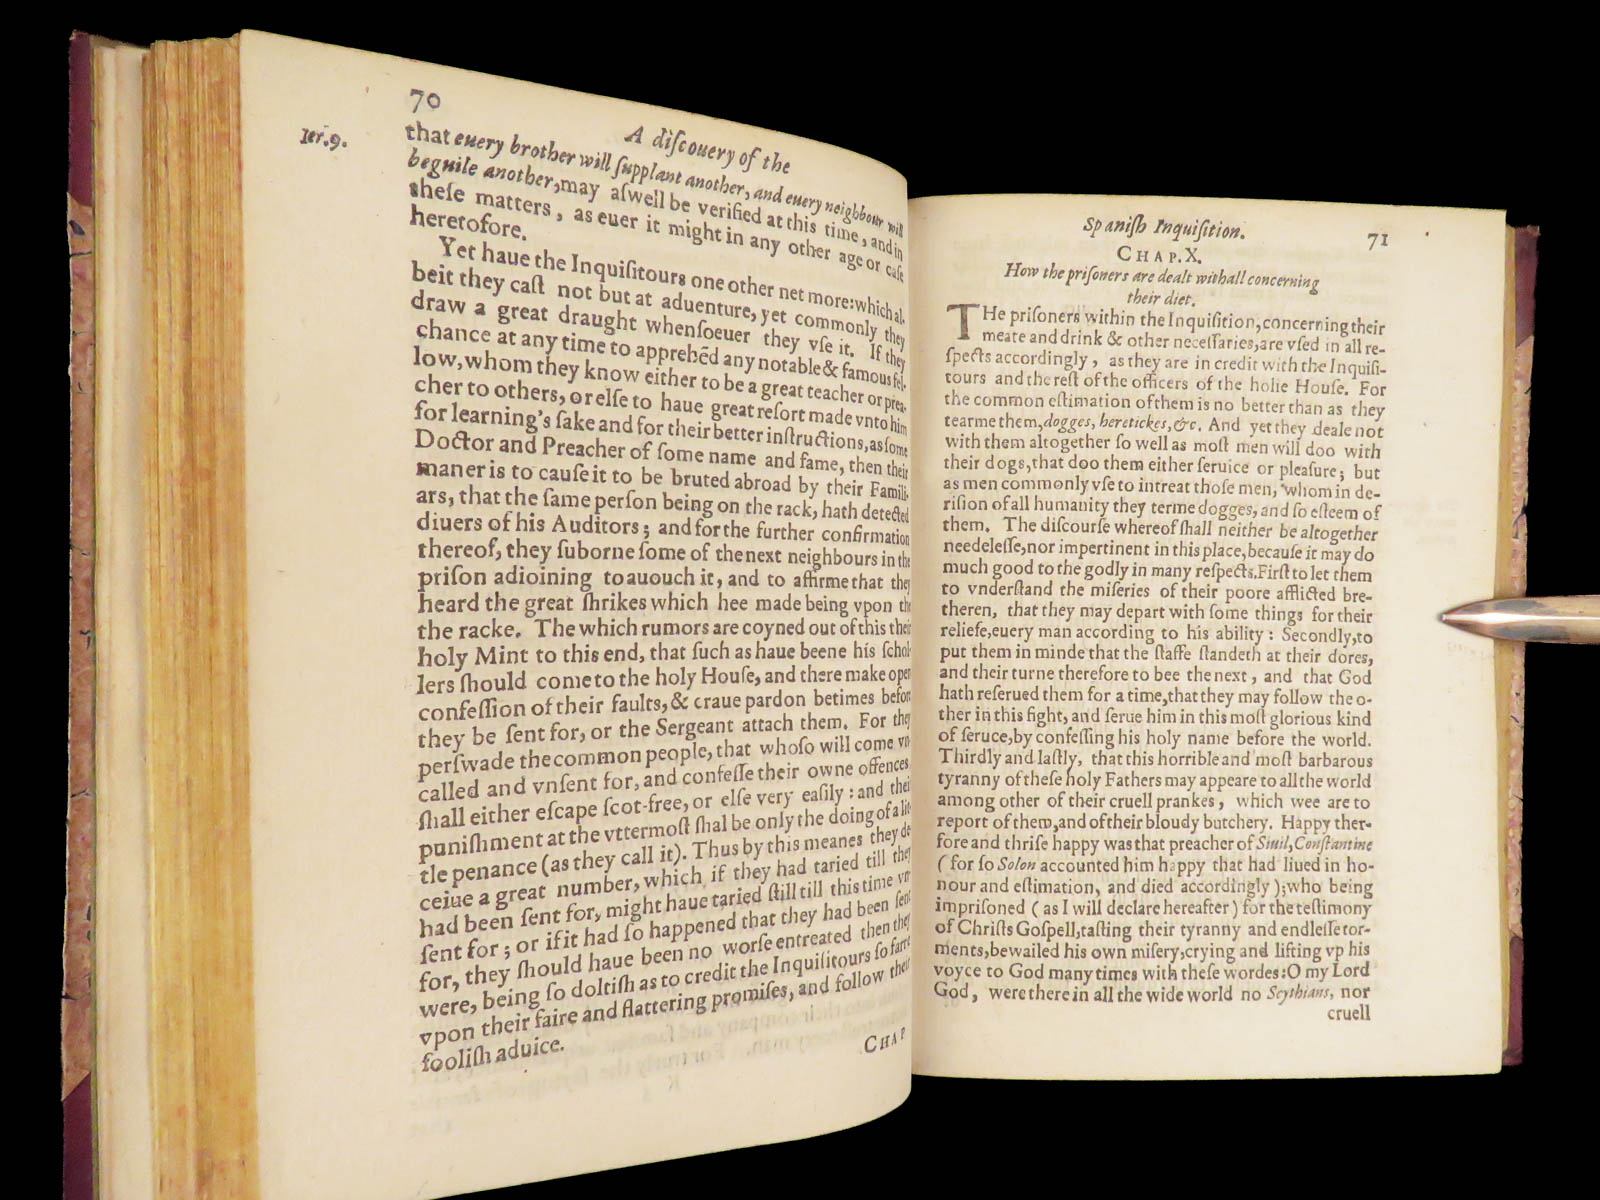 70
A diſcouery of the
Ier.9.
that euery brother will ſupplant another, and euery neighbour will
beguile another,may aſwell be verified at this time, and in
theſe matters, as euer it might in any other age or caſe
heretofore.
Yet haue the Inquiſitours one other net more:which al-
beit they caſt not but at aduenture, yet commonly they
draw a great draught whenſoeuer they vſe it. If they
chance at any time to apprehēd any notable & famous fel-
low,whom they know either to be a great teacher or prea-
cher to others, or elſe to haue great reſort made vnto him
for learning's ſake and for their better inſtructions,as ſome
Doctor and Preacher of ſome name and fame, then their
maner is to cauſe it to be bruted abroad by their Famili-
ars, that the ſame perſon being on the rack, hath detected
diuers of his Auditors; and for the further confirmation
thereof, they ſuborne ſome of the next neighbours in the
priſon adioining to auouch it, and to affirme that they
heard the great ſhrikes which hee made being vpon the
the racke. The which rumors are coyned out of this their
holy Mint to this end, that ſuch as haue beene his ſchol-
lers ſhould come to the holy Houſe, and there make open
confeſſion of their faults, & craue pardon betimes before
they be ſent for, or the Sergeant attach them. For they
perſwade the common people, that whoſo will come vn-
called and vnſent for, and confeſſe their owne offences,
ſhall either eſcape ſcot-free, or elſe very eaſily : and their
puniſhment at the vttermoſt ſhal be only the doing of a lit-
tle penance (as they call it). Thus by this meanes they de-
ceiue a great number, which if they had taried till they
had been ſent for, might haue taried ſtill till this time vn-
ſent for ; or if it had ſo happened that they had been ſent
for, they ſhould haue been no worſe entreated then they
were, being ſo doltiſh as to credit the Inquiſitours ſo farre
vpon their faire and flattering promiſes, and follow their
fooliſh aduice.
CHAP
Spaniſh Inquiſition.
71
CHAP. X.
How the priſoners are dealt withall concerning
their diet.
THe priſoners within the Inquiſition,concerning their
meate and drink & other neceſſaries,are vſed in all re-
ſpects accordingly, as they are in credit with the Inquiſi-
tours and the reſt of the officers of the holie Houſe. For
the common eſtimation of them is no better than as they
tearme them,dogges, heretickes,&c. And yet they deale not
with them altogether ſo well as moſt men will doo with
their dogs,that doo them either ſeruice or pleaſure; but
as men commonly vſe to intreat thoſe men, whom in de-
riſion of all humanity they terme dogges, and ſo eſteem of
them. The diſcourſe whereof ſhall neither be altogether
needeleſſe,nor impertinent in this place,becauſe it may do
much good to the godly in many reſpects.Firſt to let them
to vnderſtand the miſeries of their poore afflicted bre-
theren, that they may depart with ſome things for their
reliefe,euery man according to his ability : Secondly,to
put them in minde that the ſtaffe ſtandeth at their dores,
and their turne therefore to bee the next, and that God
hath reſerued them for a time,that they may follow the o-
ther in this fight, and ſerue him in this moſt glorious kind
of ſeruce,by confeſſing his holy name before the world.
Thirdly and laſtly, that this horrible and moſt barbarous
tyranny of theſe holy Fathers may appeare to all the world
among other of their cruell prankes, which wee are to
report of them,and of their bloudy butchery. Happy ther-
fore and thriſe happy was that preacher of Siuil,Conſtantine
(for ſo Solon accounted him happy that had liued in ho-
nour and eſtimation, and died accordingly);who being
impriſoned (as I will declare hereafter) for the teſtimony
of Chriſts Goſpell,taſting their tyranny and endleſſe tor-
ments,bewailed his own miſery,crying and lifting vp his
voyce to God many times with theſe wordes:O my Lord
God, were there in all the wide world no Scythians, nor
cruell